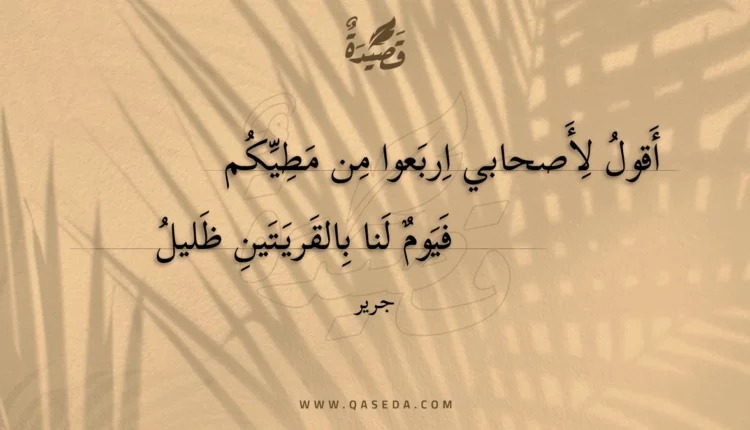 قَصِيْدَةٌ
أَقولُ لِأَصحابي اِربَعوا مِن مَطِيِّكُم
فَيَومٌ لَنا بِالقَريَتَينِ ظَليلُ
جرير
WWW.QASEDA.COM